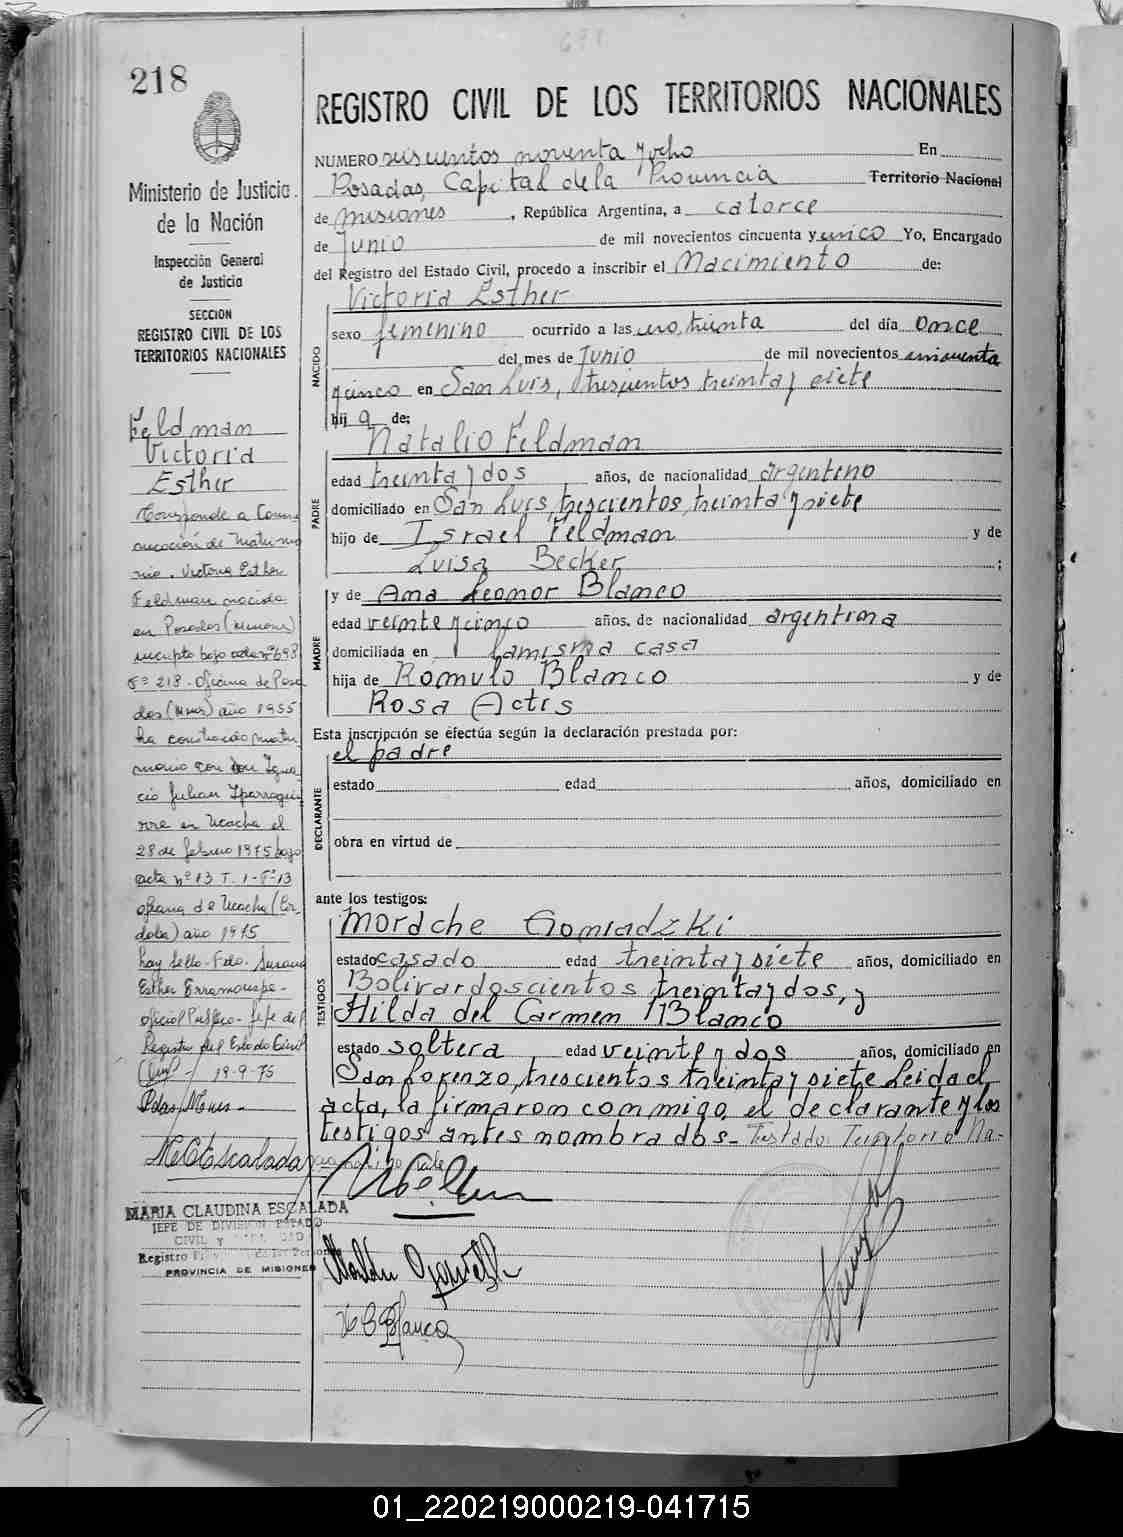 218
Ministerio de Justicia
de la Nación
Inspección General
de Justicia
SECCION
REGISTRO CIVIL DE LOS
TERRITORIOS NACIONALES
Feldman
Victoria
Esther
Corresponde a Comu-
nicación de Matrimo
nio. Victoria Esther
Feldman nacida
en Posadas (Misiones)
inscripta bajo acta nº 698
Fº 218 - Oficina de Posa
das (Mnes) año 1955
ha contraido matri
monio con don Igna
cio Julian Iparragui
rre en Ucacha el
28 de febrero 1975 bajo
acta nº 13 T. 1 - Fº 13
oficina de Ucacha (Cor_
doba) año 1975
hay sello - Fdo. Susana
Esther Erramouspe -
oficial Público - Jefe del
Registro del Estado Civil
19-9-75
Pdas, Mnes -
MARIA CLAUDINA ESCALADA
JEFE DE DIVISION ESTADO
CIVIL Y
Registro
PROVINCIA DE MISIONES
REGISTRO CIVIL DE LOS TERRITORIOS NACIONALES
NUMERO seiscientos noventa y ocho En
Posadas, Capital de la Provincia Territorio Nacional
de Misiones, República Argentina, a catorce
de Junio de mil novecientos cincuenta y cinco Yo, Encargado
del Registro del Estado Civil, procedo a inscribir el Nacimiento de:
Victoria Esther
NACIDO
sexo femenino ocurrido a las cero, treinta del día once
del mes de Junio de mil novecientos cincuenta
y cinco en San Luis, trescientos treinta y siete
hij a de:
Natalio Feldman
PADRE
edad treinta y dos años, de nacionalidad argentino
domiciliado en San Luis, trescientos, treinta y siete
hijo de Israel Feldman y de
Luisa Becker ;
y de Ana Leonor Blanco
MADRE
edad veinte y cinco años, de nacionalidad argentina
domiciliada en la misma casa
hija de Rómulo Blanco y de
Rosa Actis
Esta inscripción se efectúa según la declaración prestada por:
el padre
DECLARANTE
estado edad años, domiciliado en
obra en virtud de
ante los testigos:
Mordche Gomradzki
TESTIGOS
estado casado edad treinta y siete años, domiciliado en
Bolivar doscientos treinta y dos, y
Hilda del Carmen Blanco
estado soltera edad veinte y dos años, domiciliado en
San Lorenzo, trescientos treinta y siete Leida el
acta, la firmaron conmigo, el declarante y los
testigos antes nombrados - Testado: Territorio Na-
01_220219000219-041715